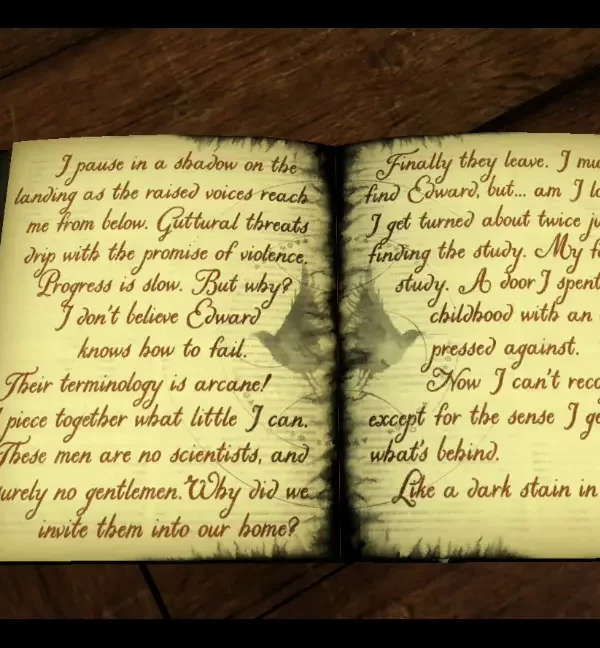 I pause in a shadow on the
landing as the raised voices reach
me from below. Guttural threats
drip with the promise of violence.
Progress is slow. But why?
I don't believe Edward
knows how to fail.
Their terminology is arcane!
I piece together what little I can.
These men are no scientists, and
surely no gentlemen. Why did we
invite them into our home?
Finally they leave. I mu
find Edward, but... am I lo
I get turned about twice ju
finding the study. My fa
study. A door I spent
childhood with an
pressed against.
Now I can't reco
except for the sense I ge
what's behind.
Like a dark stain in